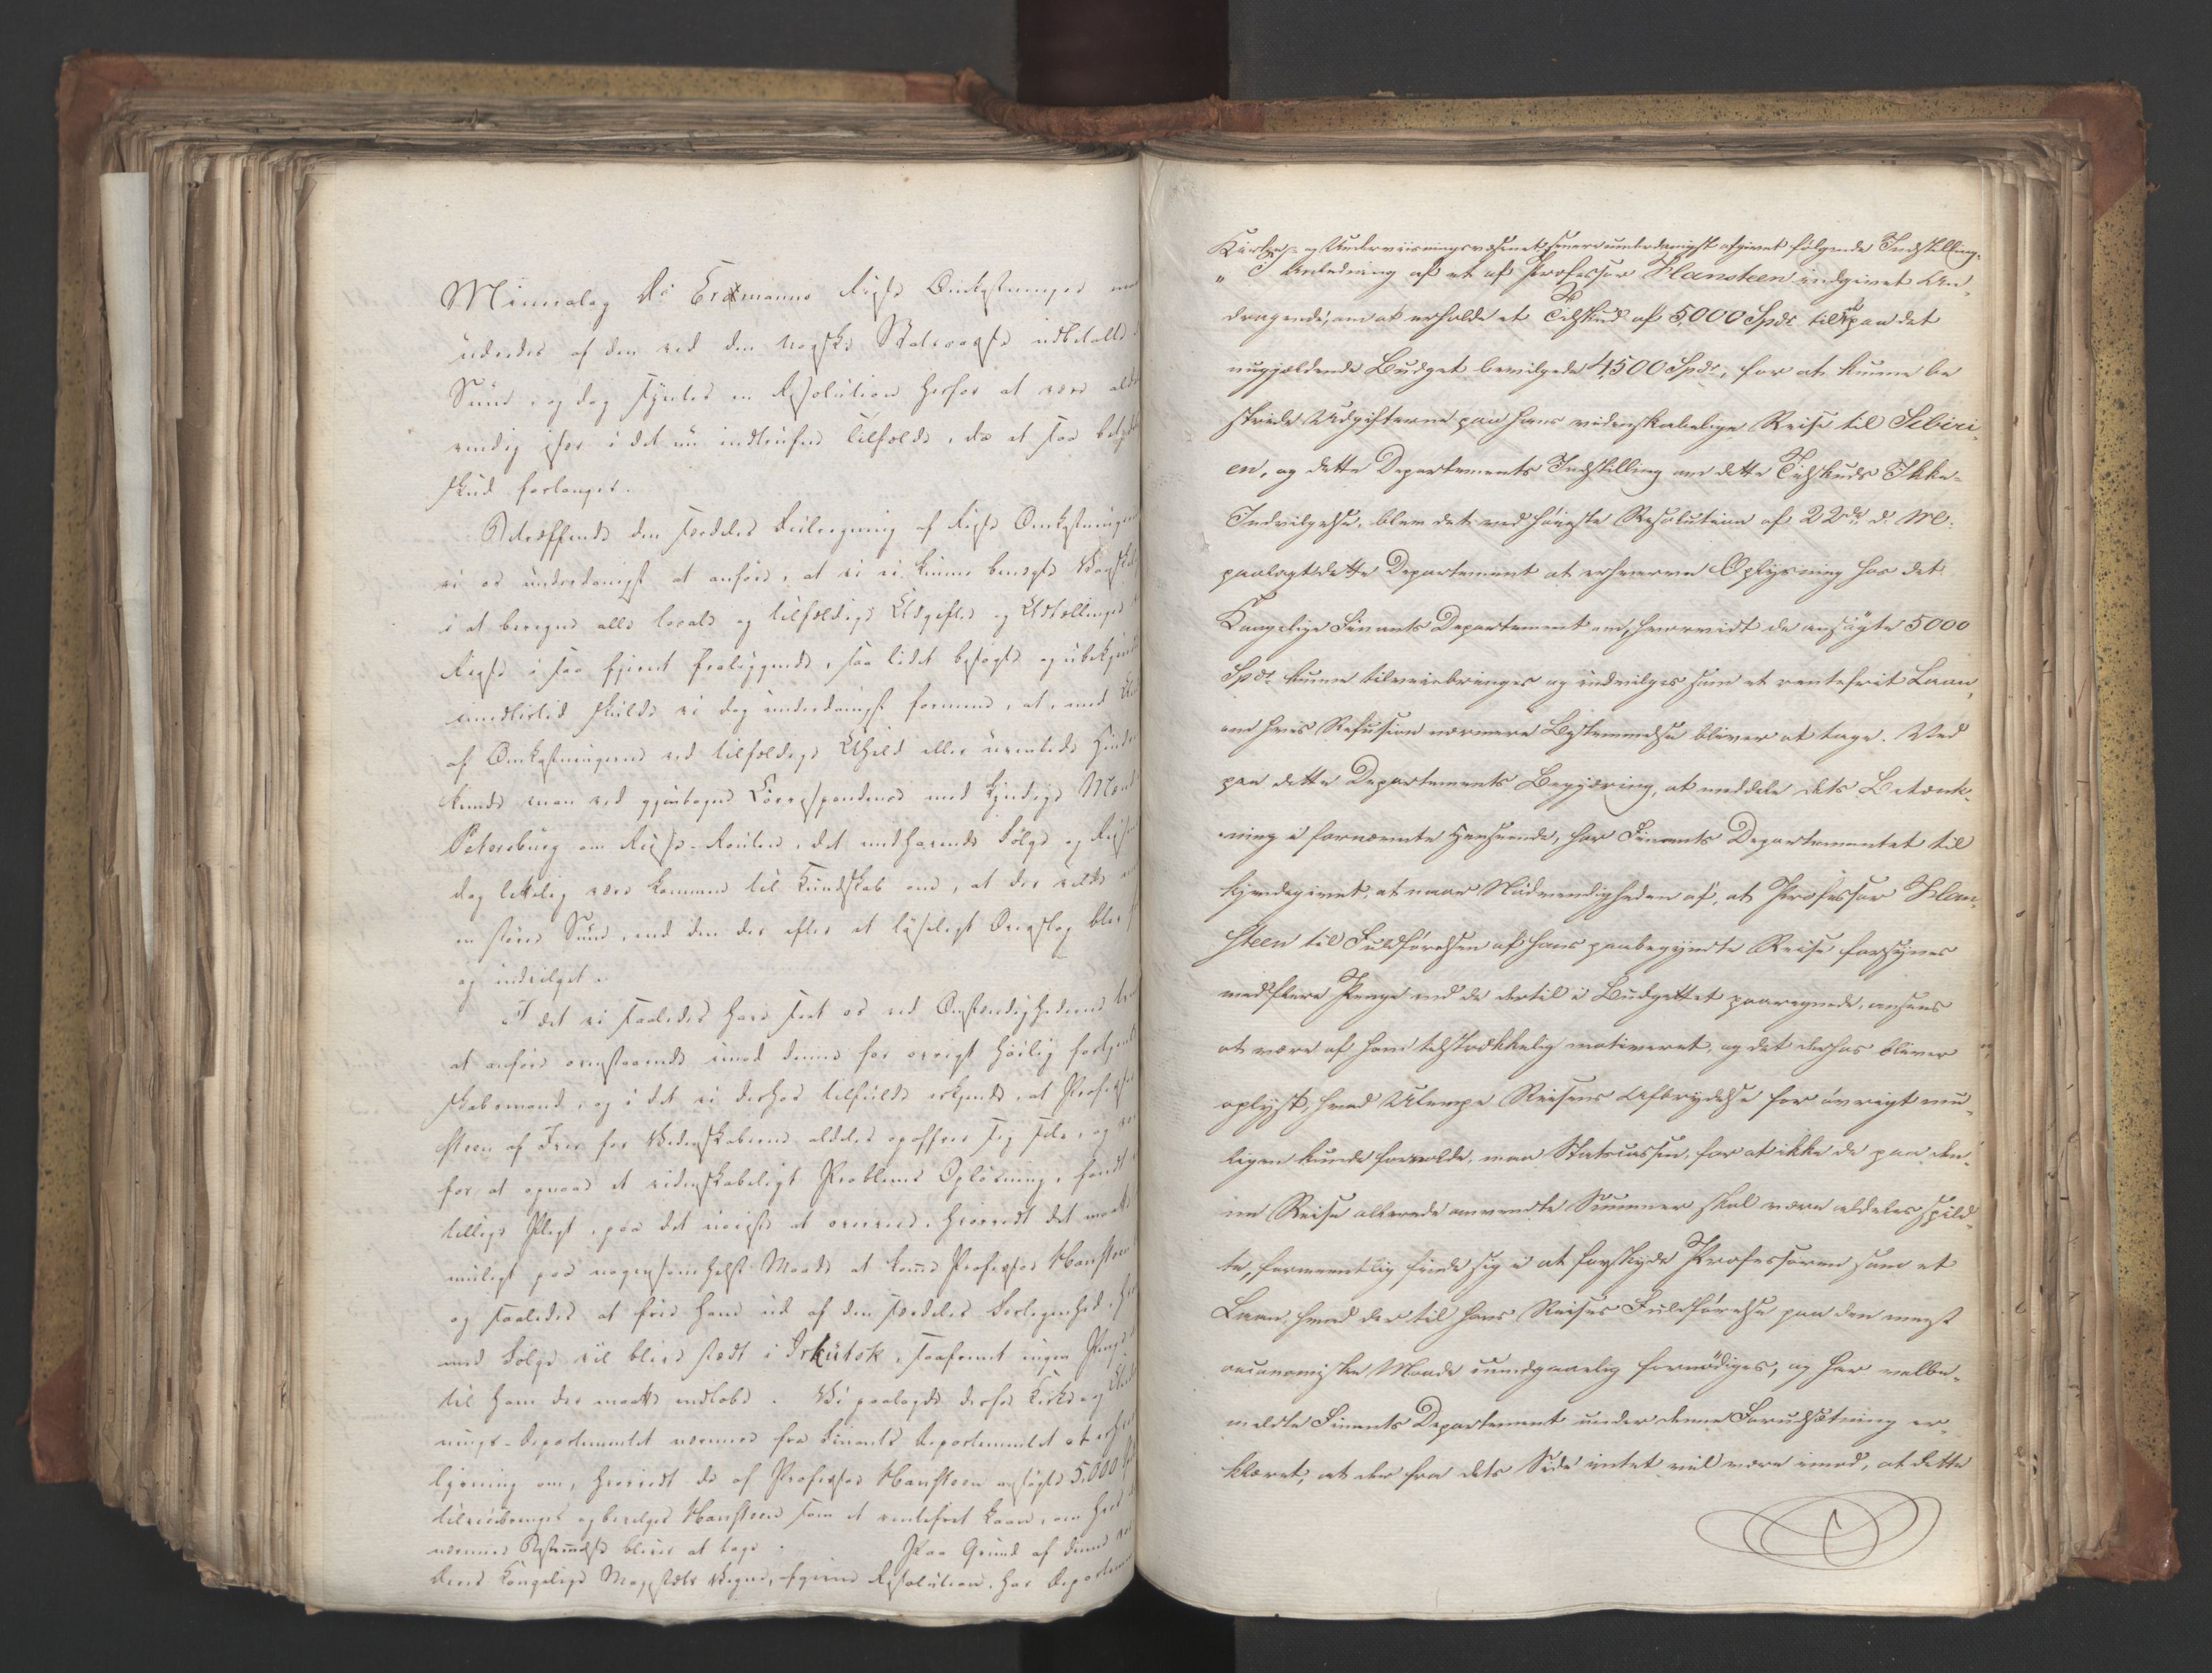 Mineralog Dr Erdmanns Reise Omkostninger
udredes af den ved den norske Statscasse udbetalte
Sum, og dog syntes en Resolution herfor at være
vendig især i det nu indtrufne Tilfælde, da et saa
skud forlanges.
Betræffende den saaledes Beregning af Reise Omkostningerne
vi os underdanigst at anføre, at vi ei kunne benegte Vanskelig
i at beregne alle locale og tilfældige Udgifter og Udtællinger
Reise i saa fjernt fraliggende, saa lidet besøgte og ubekjendte
imidlertid skulde vi dog underdanigst formene, at, med
af Omkostningerne ved tilfældige Uheld eller uventede
kunde man ved gjentagne Correspondence med kyndige Mænd
Petersburg om Reise-Routen, det medhavende Følge og
dog lettelig være kommen til Kundskab om, at der vilde
en større Sum, end den der efter et løseligt Overslag blev
og indvilget.
I det vi saaledes have seet os ved Omstændighederne
at anføre ovenstaaende imod denne for øvrigt høilig
skabsmand, og i det vi derhos tilfulde erkjende, at Profes
steen af Iver for Videnskaberne aldeles opoffrer sig selv, og
for at opnaae et videnskabeligt Problems Opløsning, fandt
tillige Pligt, paa det nøieste at overveie, hvorvidt det maatte
muligt paa nogensomhelst Maade at komme Professor Hansteen
og saaledes at frie ham ud af den saadeles Forlegenhed,
med Følge vil blive stædt i Irkutsk, saafremt ingen Penge
til ham der maatte indløbe. Vi paalagde derfor Kirke og
nings-Departementet nærmere fra Finants Departementet at
lysning om, hvorvidt de af Professor Hansteen ansøgte 5,000
tilveiebringes og bevilges Hansteen som et rentefrit Laan, om
nærmere Bestemmelse bliver at tage. Paa Grund af denne
Deres Kongelige Majestæts Vegne, given Resolution, har
Kirke- og Underviisningsvæsenet senere underdanigst afgivet følgende Indstilling:
„I Anledning af et af Professor Hansteen indgivet An-
dragende, om at erholde et Tilskud af 5,000 Spdr til de paa det
nugjældende Budget bevilgede 4,500 Spdr, for at kunne be
stride Udgifterne paa hans videnskabelige Reise til Sibiri-
en, og dette Departements Indstilling om dette Tilskuds Ikke-
Indvilgelse, blev det ved høieste Resolution af 22de d. M.
paalagt dette Departement at erhverve Oplysning hos det
Kongelige Finants Departement om, hvorvidt de ansøgte 5000
Spdr kunne tilveiebringes og indvilges som et rentefrit Laan,
om hvis Refusion nærmere Bestemmelse bliver at tage. Ved
paa dette Departements Begjæring, at meddele dets Betænk-
ning i fornævnte Henseende, har Finants Departementet til
kjendegivet, at naar Nødvendigheden af, at Professor Han-
steen til Fuldførelsen af hans paabegyndte Reise forsynes
med flere Penge end de dertil i Budgettet paaregnede, ansees
at være af ham tilstrækkelig motiveret, og det derhos bliver
oplyst, hvad Ulempe Reisens Afbrydelse for øvrigt mu-
ligen kunde forvolde, maa Statscassen, for at ikke de paa den-
ne Reise allerede anvendte Summer skal være aldeles spild-
te, formeentlig finde sig i at forskyde Professoren som et
Laan, hvad der til hans Reises Fuldførelse paa den meest
oeconomiske Maade uundgaaelig fornødiges, og har velbe-
meldte Finants Departement under denne Forudsætning er-
klæret, at der fra dets Side intet vil være imod, at dette